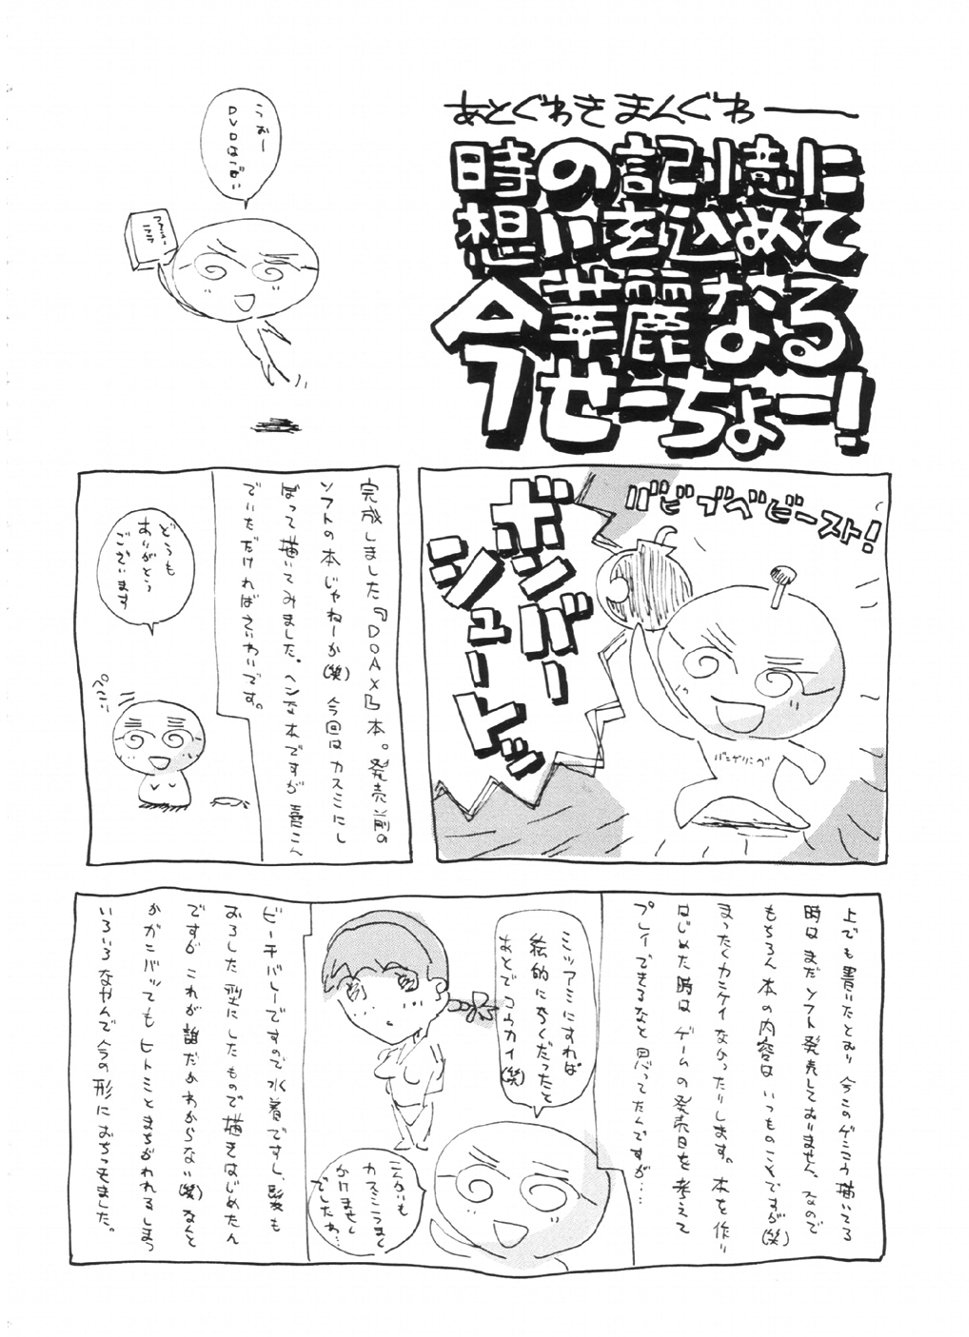 あとぐわきまんぐわ——
時の記憶に
想いを込めて
今華麗なる
今ぜーちょー!
うおー
DVDはすごい
バビブベビースト!
ボンバー
シュートッ
完成しました『DOAX』本。発売前の
ソフトの本じゃねーか(笑) 今回はカスミにし
ぼって描いてみました。ヘンな本ですが喜こん
でいただければさいわいです。
どうも
ありがとう
ございます
ぺこ
上でも書いたとおり今このゲンコウ描いてる
時はまだソフト発売しておりません。なので
もちろん本の内容はいつものことですが(笑)
まったくカンケイなかったりします。本を作り
はじめた時はゲームの発売日を考えて
プレイできるなと思ってたんですが…
ミツアミにすれば
絵的に良くだったと
あとでコウカイ(笑)
こんかいも
カスミうまく
かけません
でしたね…
ビーチバレーですので水着ですし、髪も
おろした型にしたもので描きはじめたん
ですがこれが誰だかわからない(笑)なんと
かガンバッてもヒトミとまちがわれるしまつ
いろいろなやんで今の形におちつきました。